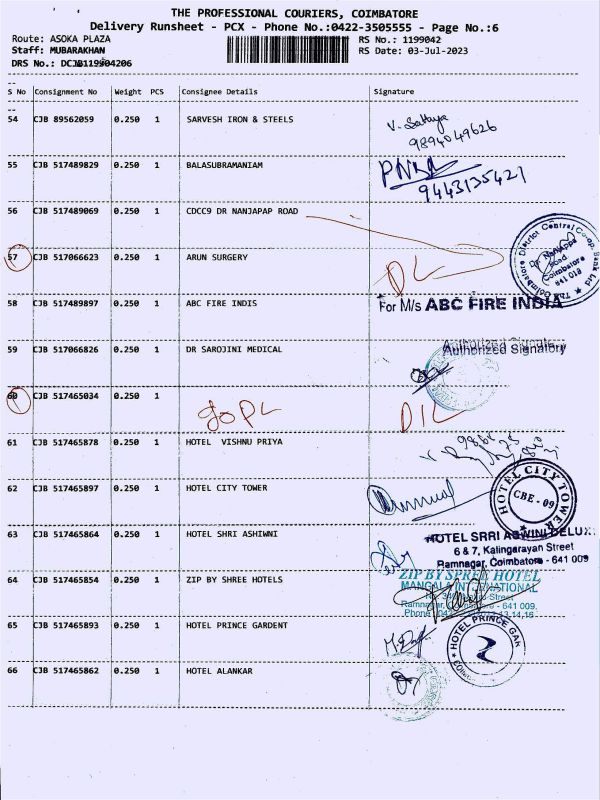 THE PROFESSIONAL COURIERS, COIMBATORE
Delivery Runsheet - PCX - Phone No.:0422-3505555 - Page No.:6
Route: ASOKA PLAZA
RS No.: 1199042
Staff: MUBARAKHAN
RS Date: 03-Jul-2023
DRS No.: DCJB119904206
S No Consignment No Weight PCS Consignee Details Signature
54 CJB 89562059 0.250 1 SARVESH IRON & STEELS
9894049626
55 CJB 517489829 0.250 1 BALASUBRAMANIAM
9443135421
56 CJB 517489069 0.250 1 CDCC9 DR NANJAPAP ROAD
The Coimbatore District Central Co-op. Bank Ltd
Dr. Nanjappa
Road
Coimbatore
641 018
57 CJB 517066623 0.250 1 ARUN SURGERY
DL
58 CJB 517489897 0.250 1 ABC FIRE INDIS
For M/s ABC FIRE INDIA
59 CJB 517066826 0.250 1 DR SAROJINI MEDICAL
Authorized Signatory
60 CJB 517465034 0.250 1
DIL
61 CJB 517465878 0.250 1 HOTEL VISHNU PRIYA
62 CJB 517465897 0.250 1 HOTEL CITY TOWER
HOTEL CITY TOWER
CBE - 09
63 CJB 517465864 0.250 1 HOTEL SHRI ASHIWNI
HOTEL SRRI ASWINI DELUX
6 & 7, Kalingarayan Street
Ramnagar, Coimbatore - 641 009
64 CJB 517465854 0.250 1 ZIP BY SHREE HOTELS
ZIP BY SPREE HOTEL
MANGALA INTERNATIONAL
Ramnagar, - 641 009.
65 CJB 517465893 0.250 1 HOTEL PRINCE GARDENT
HOTEL PRINCE GAR
66 CJB 517465862 0.250 1 HOTEL ALANKAR